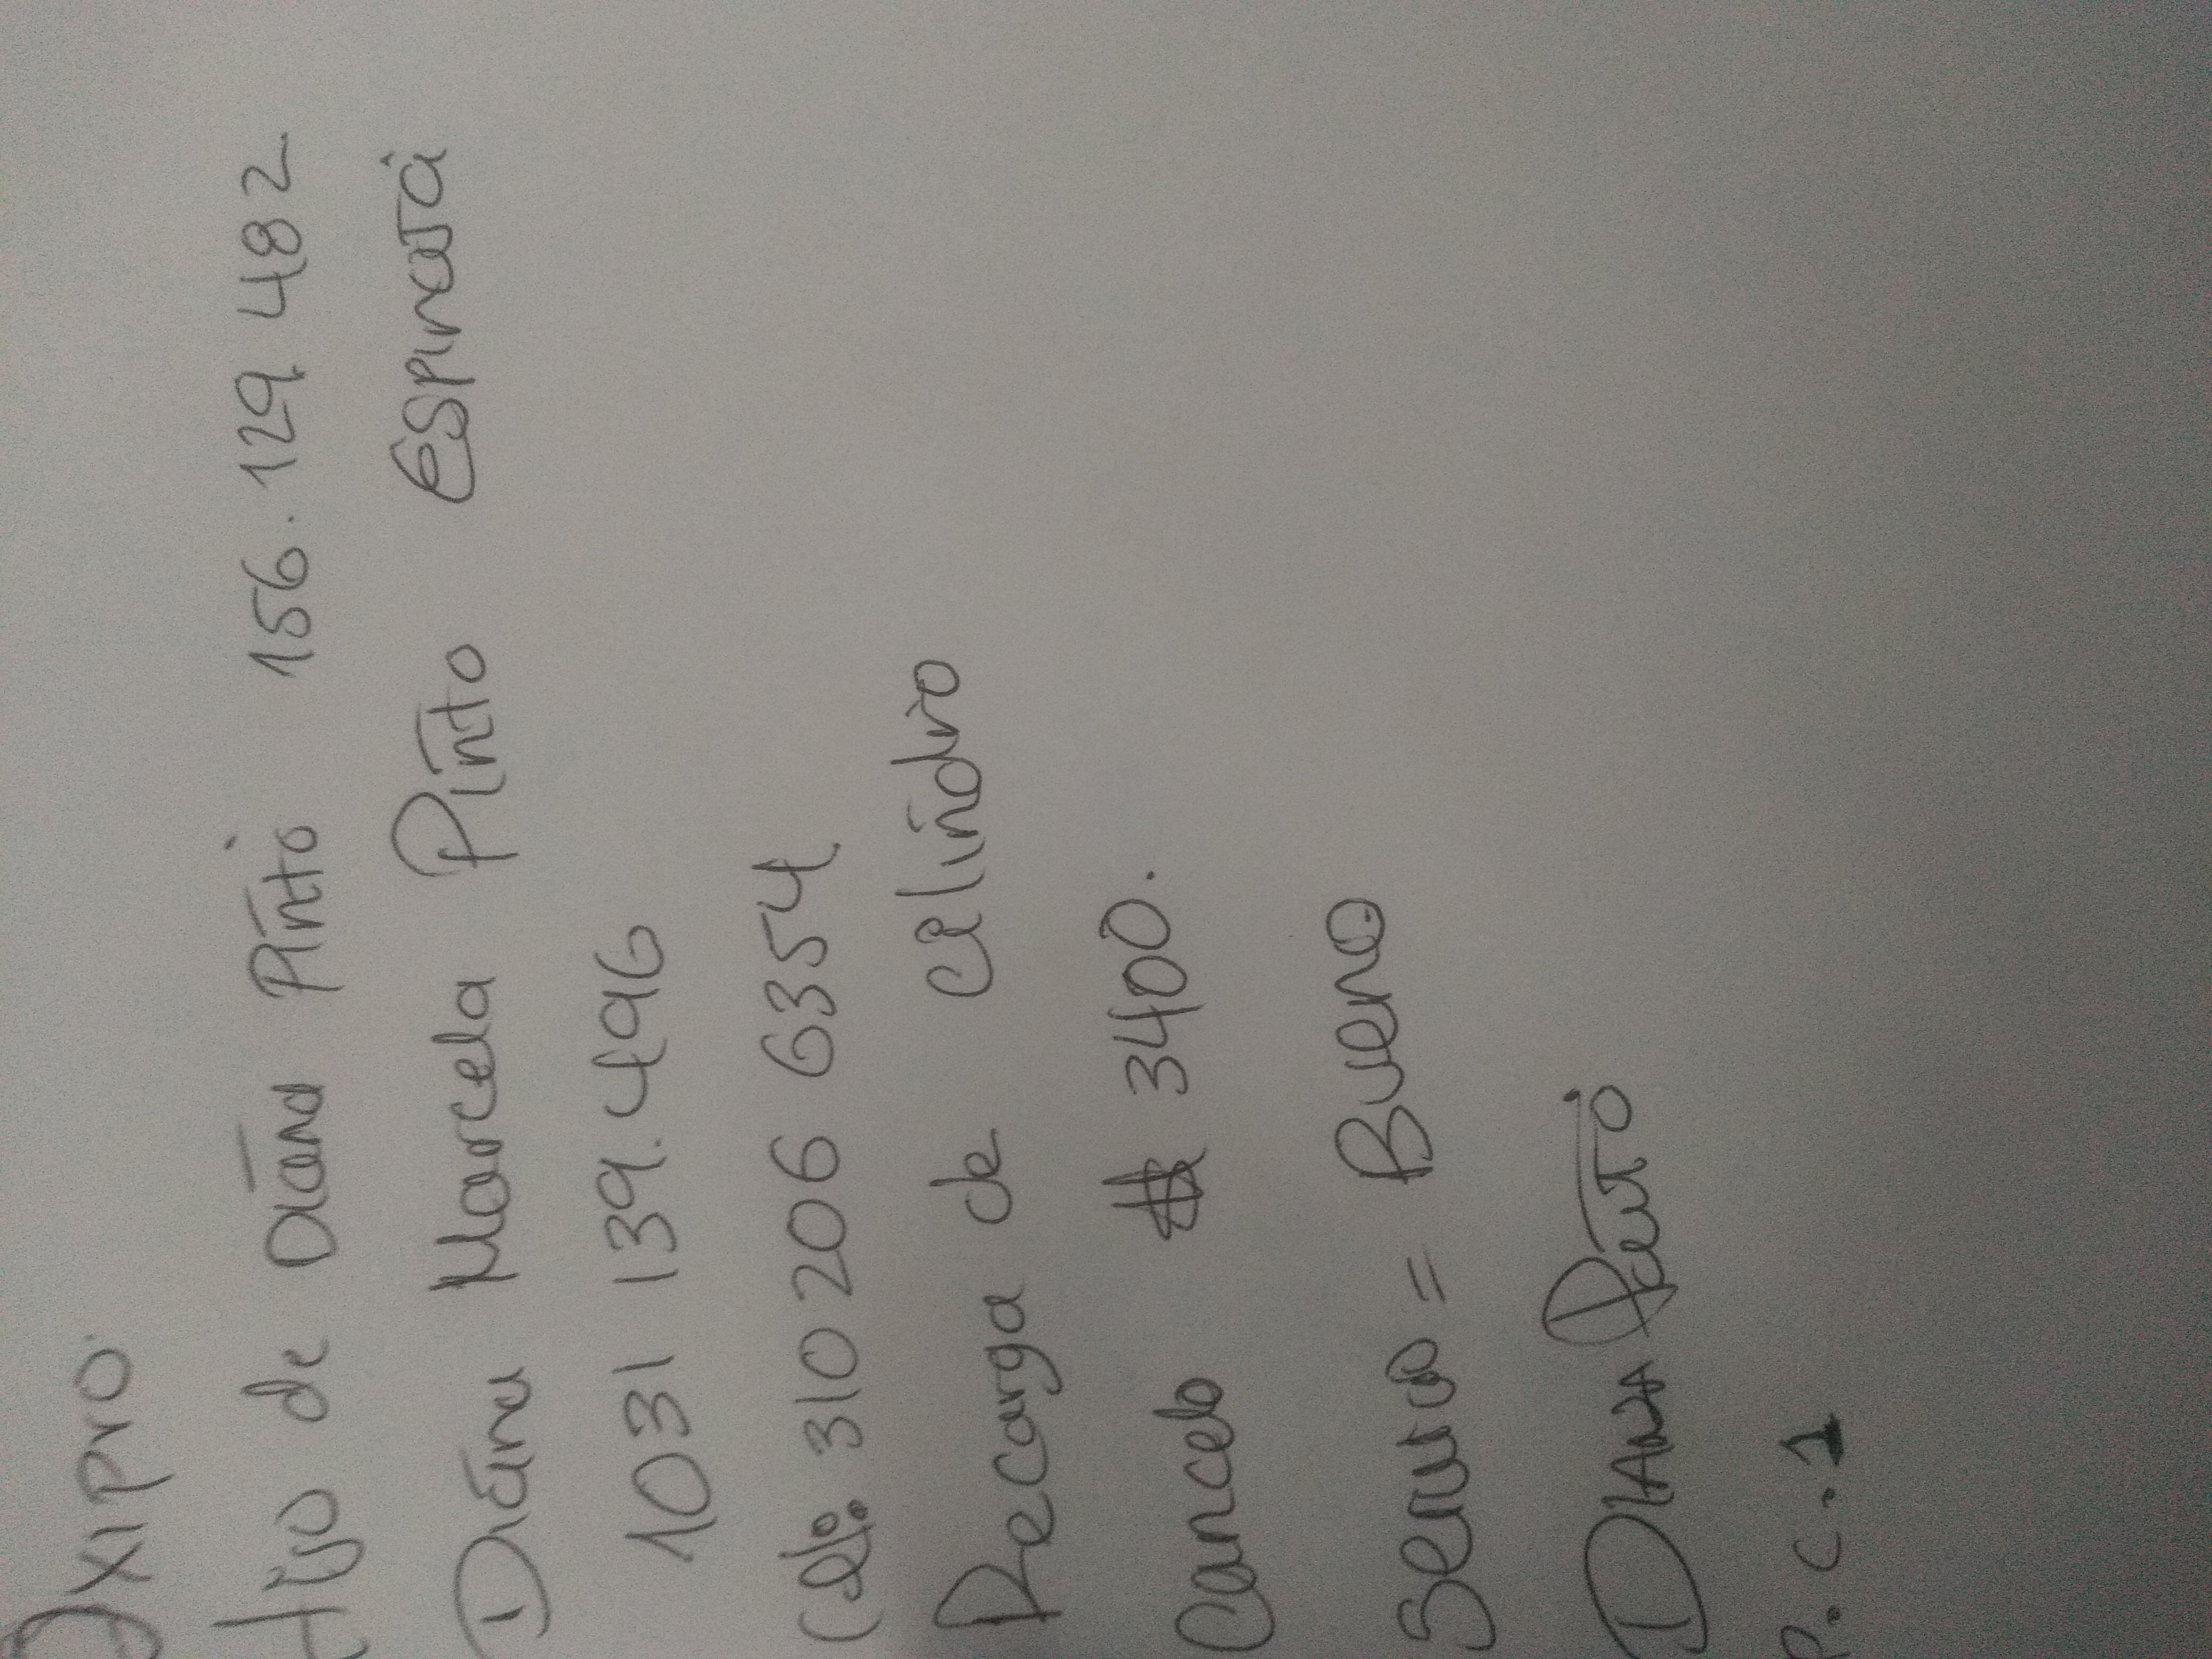 Oxipro
Hijo de Diana Pinto 156.129 482
Diana Marcela Pinto Espinosa
1031 139.496
Cel: 310 206 6354
Recarga de celindro
Cancelo # 3400.
Servicio = Bueno
Diana Pinto
P.C.1